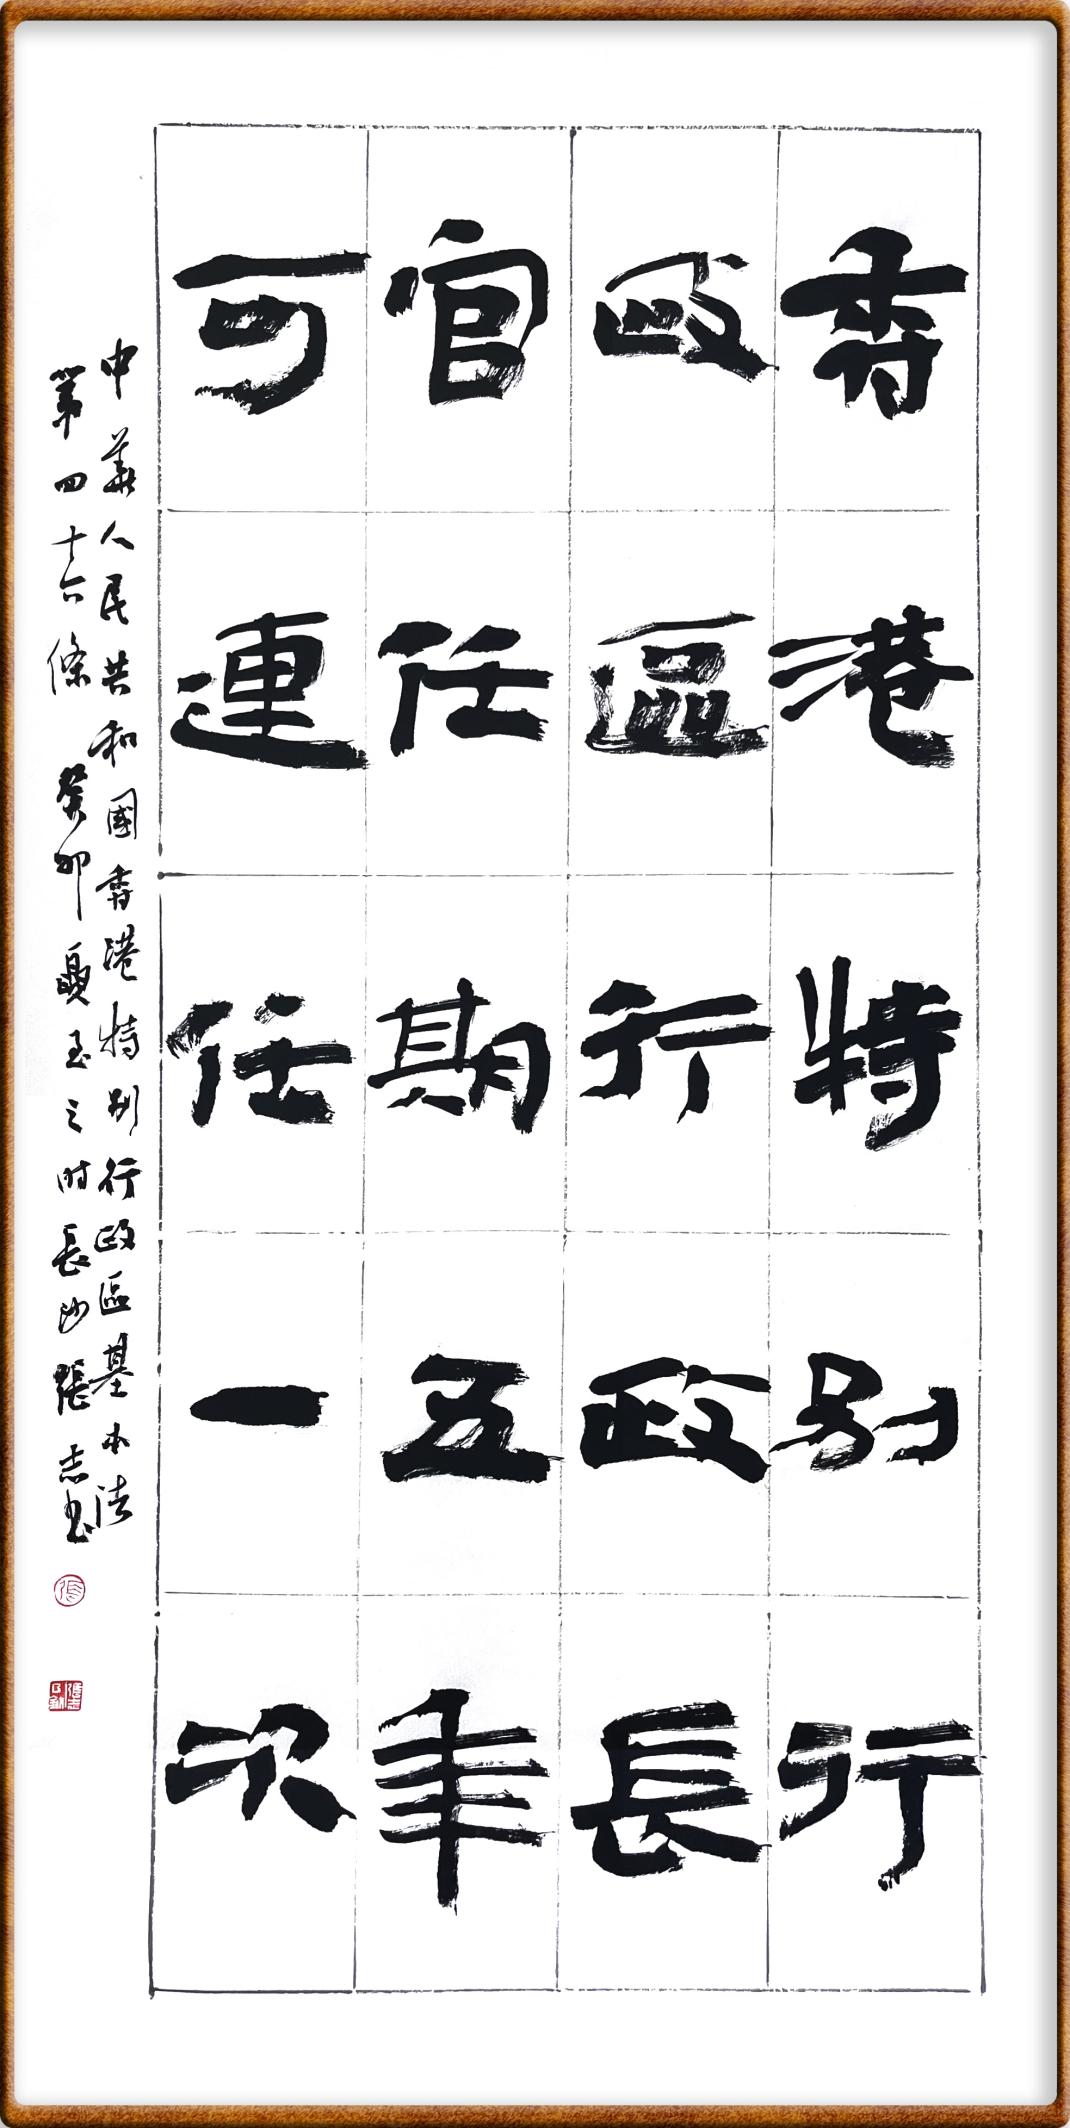 香港特别行
政區行政長
官任期五年
可連任一次
中華人民共和國香港特别行政區基本法
第四十六條 癸卯夏至之时長沙張志书